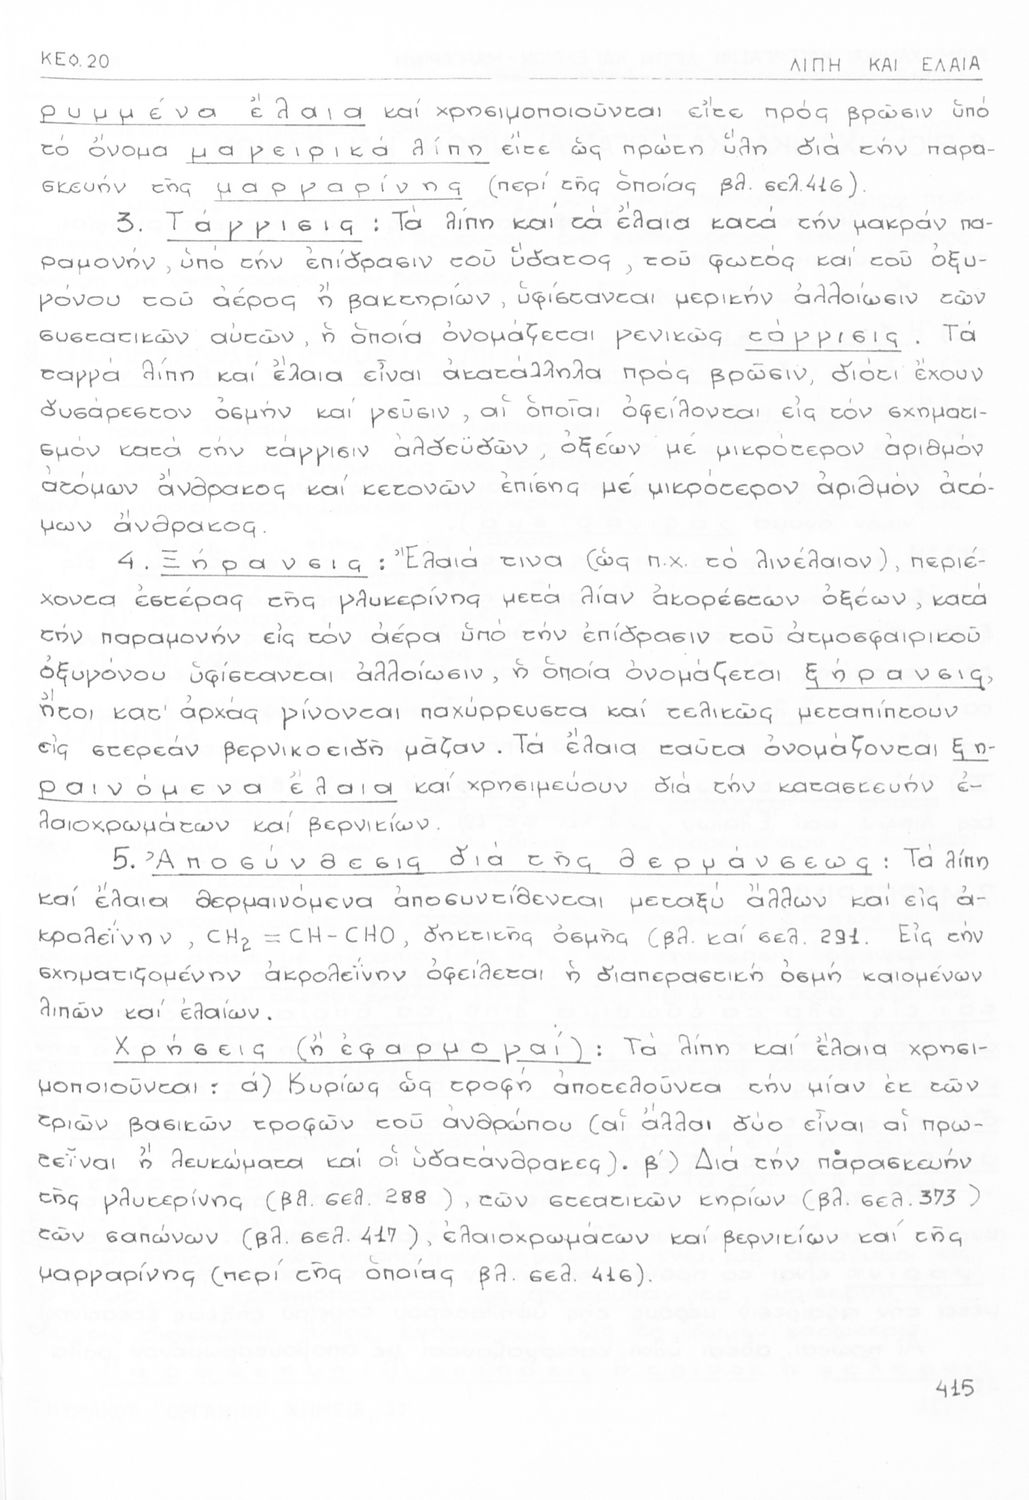 ΚΕΦ. 20
ΛΙΠΗ ΚΑΙ ΕΛΑΙΑ
ρυμμένα ἔλαια καί χρησιμοποιοῦνται εἴτε πρός βρῶσιν ὑπό
τό ὄνομα μαγειρικά λίπη εἴτε ὡς πρώτη ὕλη διά τήν παρα-
σκευήν τῆς μαργαρίνης (περί τῆς ὁποίας βλ. σελ. 416).
3. Τάγγισις : Τά λίπη καί τά ἔλαια κατά τήν μακράν πα-
ραμονήν, ὑπό τήν ἐπίδρασιν τοῦ ὕδατος, τοῦ φωτός καί τοῦ ὀξυ-
γόνου τοῦ ἀέρος ἤ βακτηρίων, ὑφίστανται μερικήν ἀλλοίωσιν τῶν
συστατικῶν αὐτῶν, ἡ ὁποία ὀνομάζεται γενικῶς τάγγισις. Τά
ταγγά λίπη καί ἔλαια εἶναι ἀκατάλληλα πρός βρῶσιν, διότι ἔχουν
δυσάρεστον ὀσμήν καί γεῦσιν, αἱ ὁποῖαι ὀφείλονται εἰς τόν σχηματι-
σμόν κατά τήν τάγγισιν ἀλδεϋδῶν, ὀξέων μέ μικρότερον ἀριθμόν
ἀτόμων ἄνθρακος καί κετονῶν ἐπίσης μέ μικρότερον ἀριθμόν ἀτό-
μων ἄνθρακος.
4. Ξήρανσις : Ἔλαιά τινα (ὡς π.χ. τό λινέλαιον), περιέ-
χοντα ἐστέρας τῆς γλυκερίνης μετά λίαν ἀκορέστων ὀξέων, κατά
τήν παραμονήν εἰς τόν ἀέρα ὑπό τήν ἐπίδρασιν τοῦ ἀτμοσφαιρικοῦ
ὀξυγόνου ὑφίστανται ἀλλοίωσιν, ἡ ὁποία ὀνομάζεται ξήρανσις,
ἤτοι κατ' ἀρχάς γίνονται παχύρρευστα καί τελικῶς μεταπίπτουν
εἰς στερεάν βερνικοειδῆ μᾶζαν. Τά ἔλαια ταῦτα ὀνομάζονται ξη-
ραινόμενα ἔλαια καί χρησιμεύουν διά τήν κατασκευήν ἐ-
λαιοχρωμάτων καί βερνικίων.
5. Ἀποσύνθεσις διά τῆς θερμάνσεως : Τά λίπη
καί ἔλαια θερμαινόμενα ἀποσυντίθενται μεταξύ ἄλλων καί εἰς ἀ-
κρολεΐνην, CH₂=CH-CHO, δηκτικῆς ὀσμῆς (βλ. καί σελ. 291. Εἰς τήν
σχηματιζομένην ἀκρολεΐνην ὀφείλεται ἡ διαπεραστική ὀσμή καιομένων
λιπῶν καί ἐλαίων.
Χρήσεις (ἤ ἐφαρμογαί) : Τά λίπη καί ἔλαια χρησι-
μοποιοῦνται : ά) Κυρίως ὡς τροφή ἀποτελοῦντα τήν μίαν ἐκ τῶν
τριῶν βασικῶν τροφῶν τοῦ ἀνθρώπου (αἱ ἄλλαι δύο εἶναι αἱ πρω-
τεῖναι ἤ λευκώματα καί οἱ ὑδατάνθρακες). β΄) Διά τήν παρασκευήν
τῆς γλυκερίνης (βλ. σελ. 288 ), τῶν στεατικῶν κηρίων (βλ. σελ. 373 )
τῶν σαπώνων (βλ. σελ. 417 ), ἐλαιοχρωμάτων καί βερνικίων καί τῆς
μαργαρίνης (περί τῆς ὁποίας βλ. σελ. 416).
415